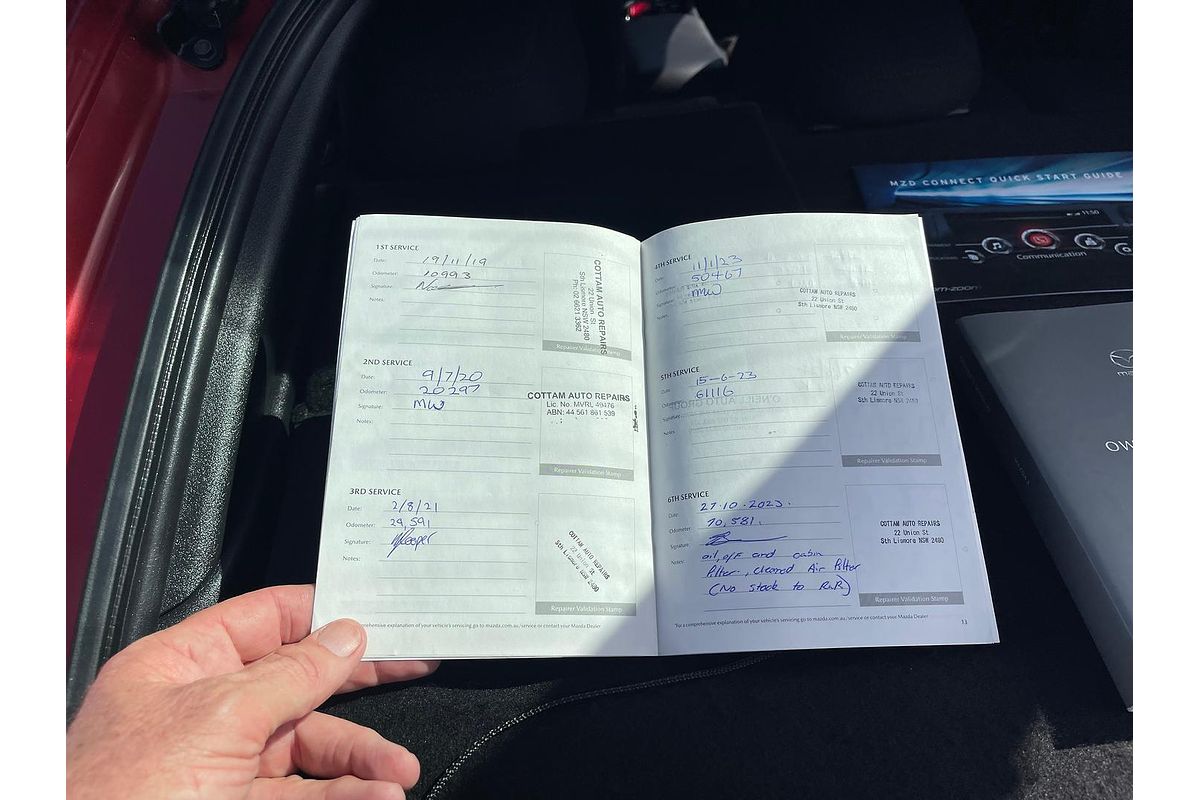 MZD CONNECT QUICK START GUIDE
11:50
Communication
OW
1ST SERVICE
Date: 19/11/19
Odometer: 10993
Signature:
Notes:
COTTAM AUTO REPAIRS
22 Union St
Sth Lismore NSW 2480
Ph: 02 6621 3362
Repairer Validation Stamp
2ND SERVICE
Date: 9/7/20
Odometer: 20297
Signature: MW
Notes:
COTTAM AUTO REPAIRS
Lic. No. MVRL 49476
ABN: 44 561 861 539
Repairer Validation Stamp
3RD SERVICE
Date: 2/8/21
Odometer: 29,591
Signature:
Notes:
COTTAM AUTO REPAIRS
22 Union St
Sth Lismore NSW 2480
Repairer Validation Stamp
*For a comprehensive explanation of your vehicle's servicing go to mazda.com.au/service or contact your Mazda Dealer
4TH SERVICE
Date: 11/1/23
Odometer: 50467
Signature: MW
Notes:
COTTAM AUTO REPAIRS
22 Union St
Sth Lismore NSW 2480
Repairer Validation Stamp
5TH SERVICE
Date: 15-6-23
Odometer: 61116
Signature:
Notes:
COTTAM AUTO REPAIRS
22 Union St
Sth Lismore NSW 2480
Repairer Validation Stamp
6TH SERVICE
Date: 27.10.2023.
Odometer: 70,581.
Signature:
Notes: oil, o/F and cabin
filter, cleaned Air filter
(No stock to R&R)
COTTAM AUTO REPAIRS
22 Union St
Sth Lismore NSW 2480
Repairer Validation Stamp
*For a comprehensive explanation of your vehicle's servicing go to mazda.com.au/service or contact your Mazda Dealer
13